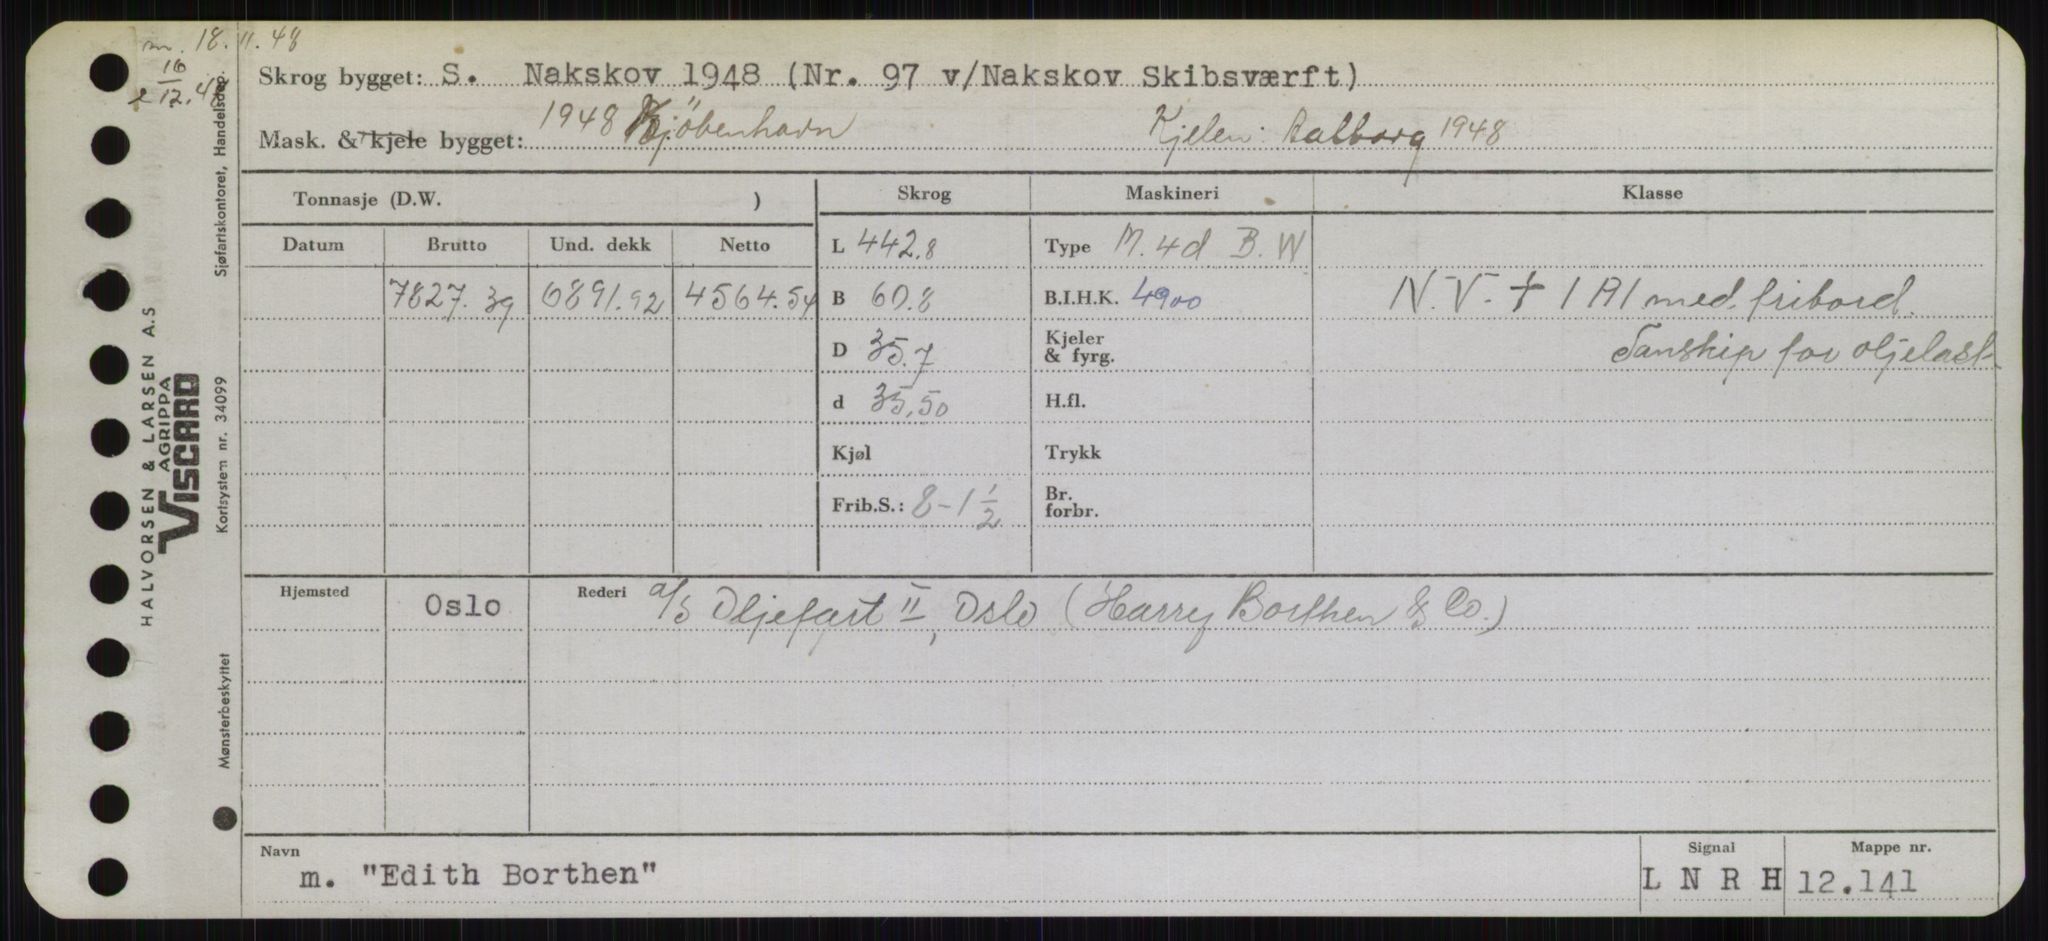 m. 18.11.48
16
12.48
Skrog bygget: S. Nakskov 1948 (Nr. 97 v/Nakskov Skibsværft)
Mask. & kjele bygget: 1948 Kjöbenhavn Kjelen: Aalborg 1948
Tonnasje (D.W. ) Skrog Maskineri Klasse
Datum Brutto Und. dekk Netto L 442.8 Type M. 4d B. W
7827.39 6891.92 4564.54 B 60.8 B.I.H.K. 4900 N.V. + 1A1 med fribord.
D 35.7 Kjeler & fyrg. Tankship for oljelast
d 35.50 H.fl.
Kjøl Trykk
Frib.S.: 8-1 1/2 Br. forbr.
Hjemsted Oslo Rederi a/s Oljefart II, Oslo (Harry Borthen & Co.)
Navn Signal Mappe nr.
m. "Edith Borthen" L N R H 12.141
HALVORSEN & LARSEN A.S
AGRIPPA
VISCARD
Sjøfartskontoret, Handelsdep.
Kortsystem nr. 34099
Mønsterbeskyttet